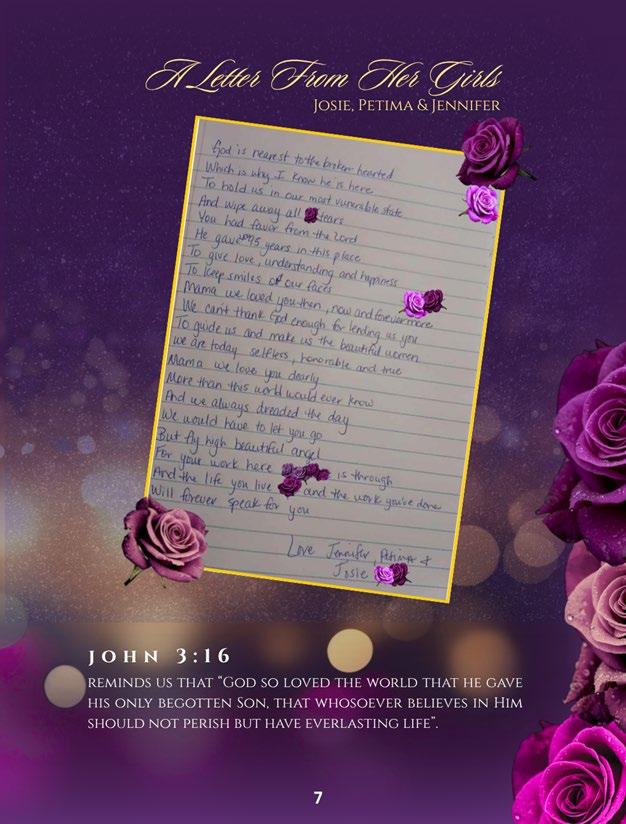 A Letter From Her Girls
Josie, Petima & Jennifer
God is nearest to the broken hearted
Which is why I know he is here
To hold us in our most vunerable state
And wipe away all tears
You had favor from the Lord
He gave you 75 years in this place
To give love, understanding and happiness
To keep smiles of our faces
Mama we loved you then, now and forevermore
We can't thank God enough for lending us you
To guide us and make us the beautiful women
we are today selfless, honorable and true
Mama we love you dearly
More than this world would ever know
And we always dreaded the day
We would have to let you go
But fly high beautiful angel
For your work here is through
And the life you live and the work you've done
Will forever speak for you
Love Jennifer, Petima &
Josie
John 3:16
reminds us that “God so loved the world that he gave
his only begotten Son, that whosoever believes in Him
should not perish but have everlasting life”.
7